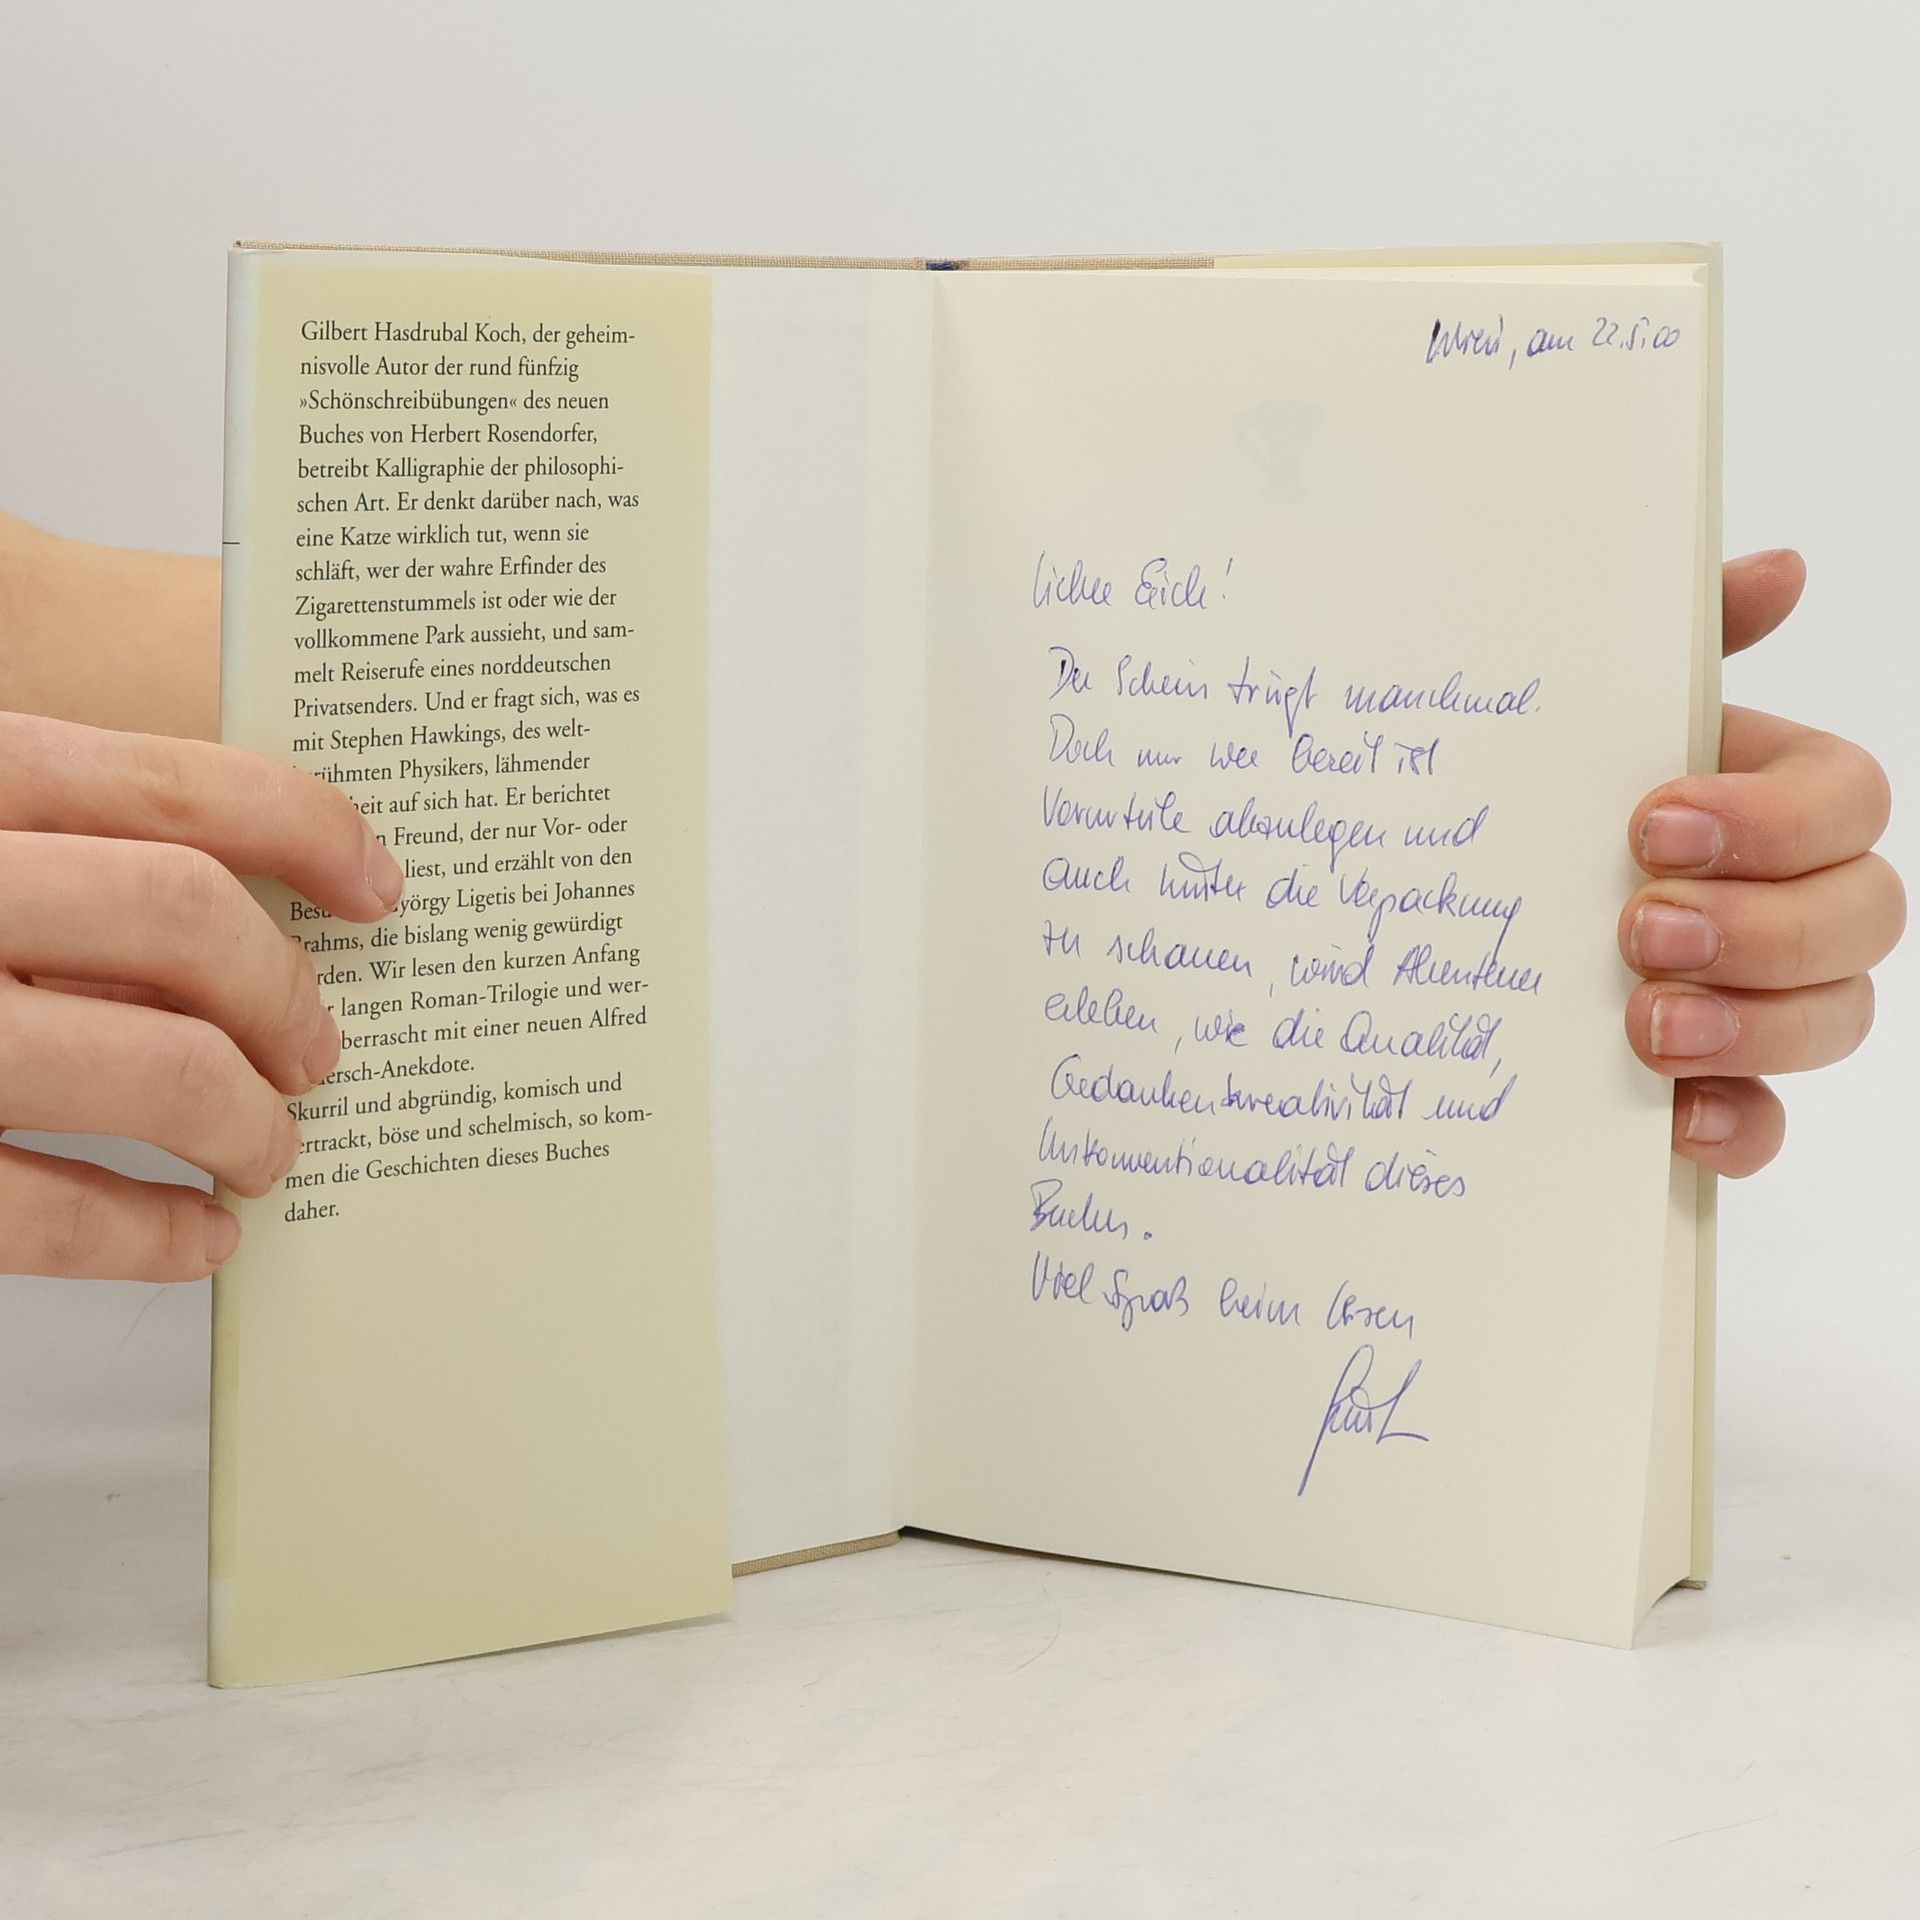 Gilbert Hasdrubal Koch, der geheim-
nisvolle Autor der rund fünfzig
»Schönschreibübungen« des neuen
Buches von Herbert Rosendorfer,
betreibt Kalligraphie der philosophi-
schen Art. Er denkt darüber nach, was
eine Katze wirklich tut, wenn sie
schläft, wer der wahre Erfinder des
Zigarettenstummels ist oder wie der
vollkommene Park aussieht, und sam-
melt Reiserufe eines norddeutschen
Privatsenders. Und er fragt sich, was es
mit Stephen Hawkings, des welt-
rühmten Physikers, lähmender
heit auf sich hat. Er berichtet
n Freund, der nur Vor- oder
liest, und erzählt von den
Besu yörgy Ligetis bei Johannes
Brahms, die bislang wenig gewürdigt
rden. Wir lesen den kurzen Anfang
r langen Roman-Trilogie und wer-
berrascht mit einer neuen Alfred
ersch-Anekdote.
Skurril und abgründig, komisch und
ertrackt, böse und schelmisch, so kom-
men die Geschichten dieses Buches
daher.
Wien, am 22.5.00
Lieber Erich!
Der Schein trügt manchmal.
Doch nur wer bereit ist
Vorurteile abzulegen und
auch hinter die Verpackung
zu schauen, wird Abenteuer
erleben, wie die Qualität,
Gedankenkreativität und
Unkonventionalität dieses
Buches.
Viel Spaß beim Lesen